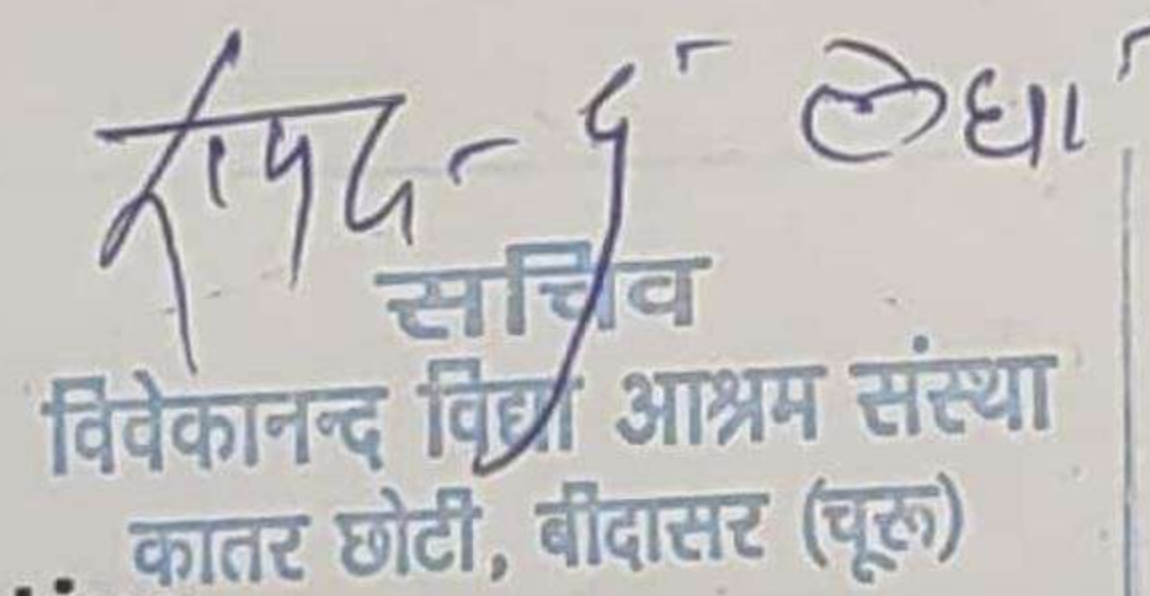 सचिव
विवेकानन्द विद्या आश्रम संस्था
कातर छोटी, बीदासर (चूरू)